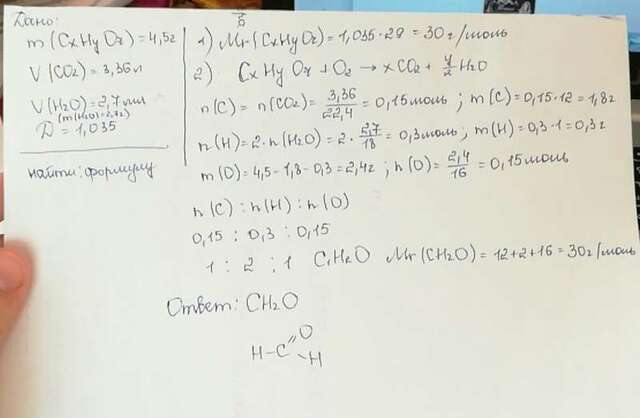 Дано:
m (CxHyOz) = 4,5г
V (CO2) = 3,36 л
V(H2O) = 2,7 мл
(m(H2O)=2,7г)
D = 1,035
найти: формулу
б
1) Mr (CxHyOz) = 1,035 · 29 = 30 г/моль
2) CxHyOz + O2 → xCO2 + y/2 H2O
n(C) = n(CO2) = 3,36/22,4 = 0,15 моль ; m(C) = 0,15 · 12 = 1,8г
n(H) = 2 · n(H2O) = 2 · 2,7/18 = 0,3 моль ; m(H) = 0,3 · 1 = 0,3г
m(O) = 4,5 - 1,8 - 0,3 = 2,4г ; n(O) = 2,4/16 = 0,15 моль
n(C) : n(H) : n(O)
0,15 : 0,3 : 0,15
1 : 2 : 1 C1H2O Mr (CH2O) = 12+2+16 = 30 г/моль
Ответ: CH2O
O
H-C
H